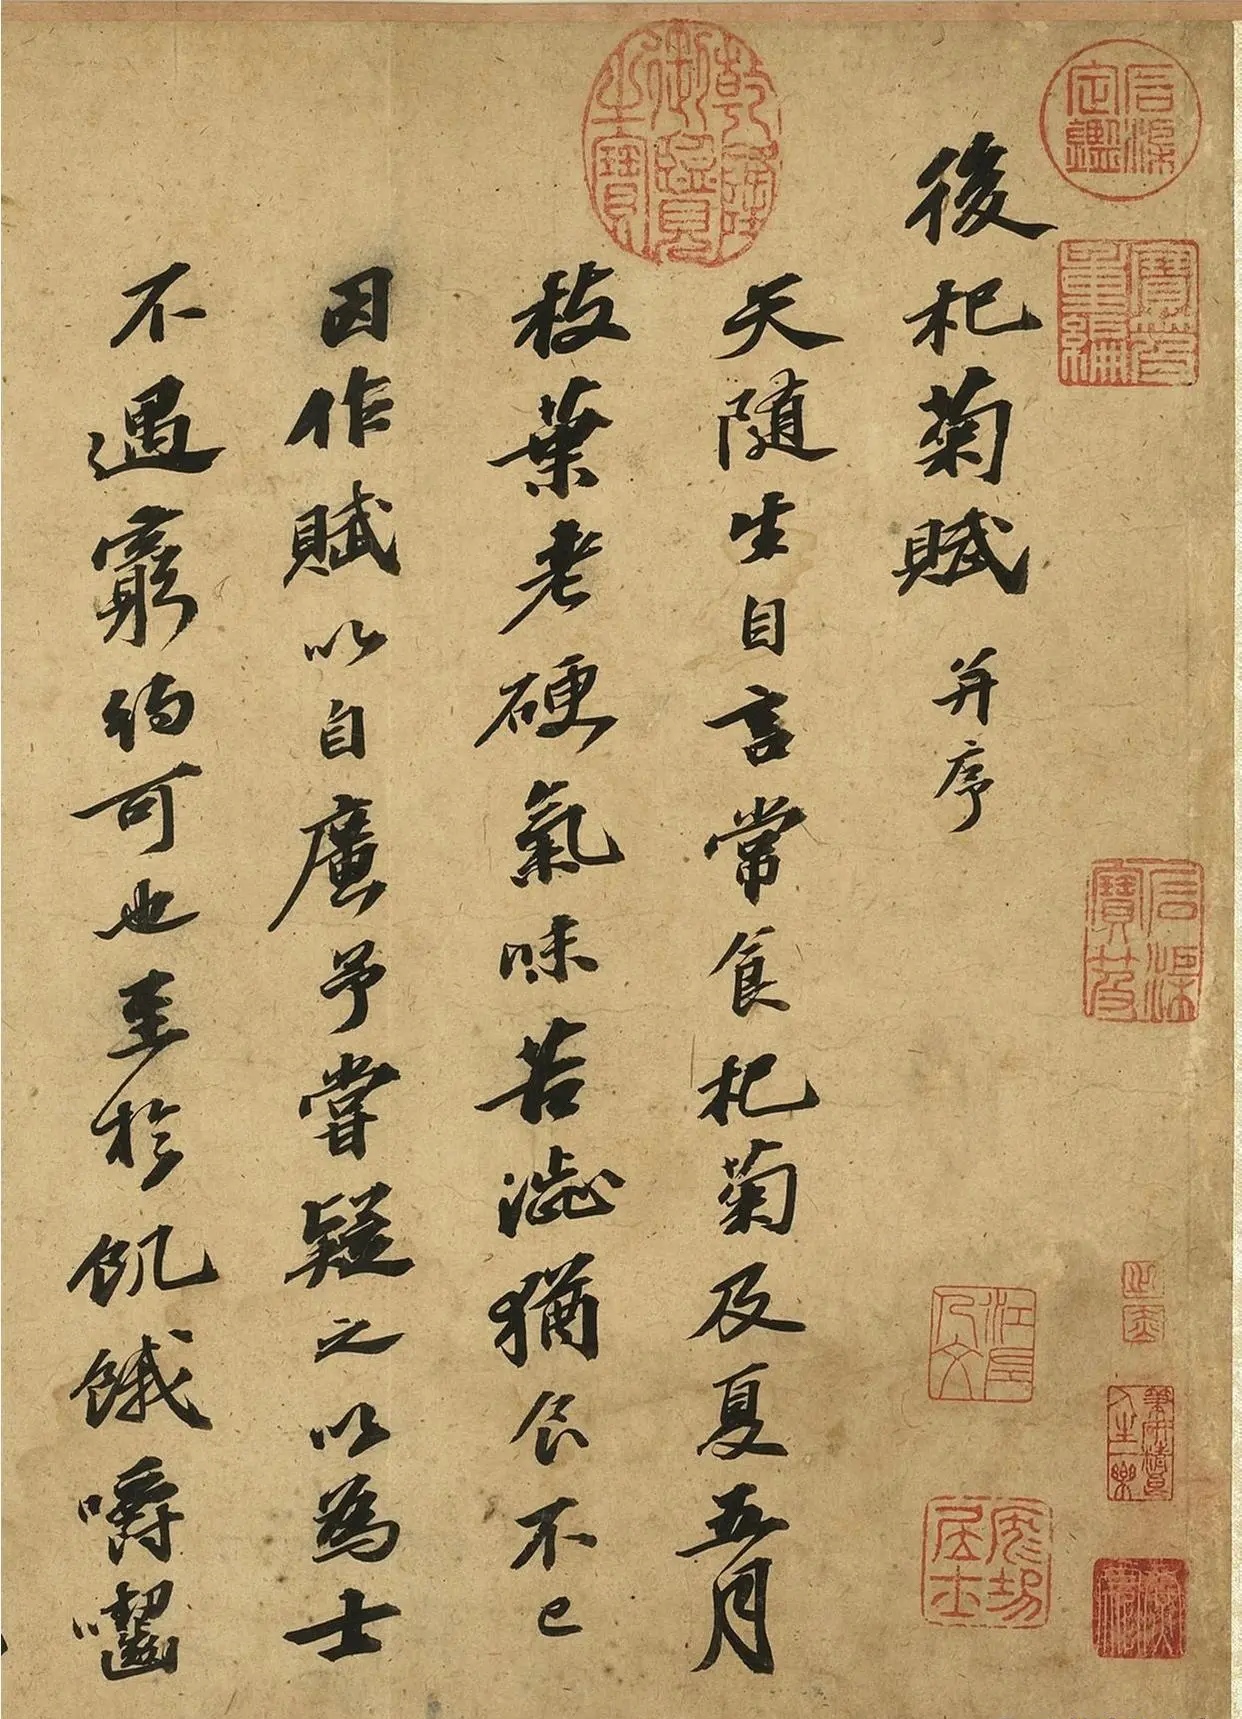 後杞菊賦 并序
天隨生自言常食杞菊及夏五月
枝葉老硬氣味苦澁猶食不已
因作賦以自廣予嘗疑之以為士
不遇窮約可也至於飢餓嚼齧
乾隆御覽之寶
石渠定鑑
寶笈重編
石渠寶笈